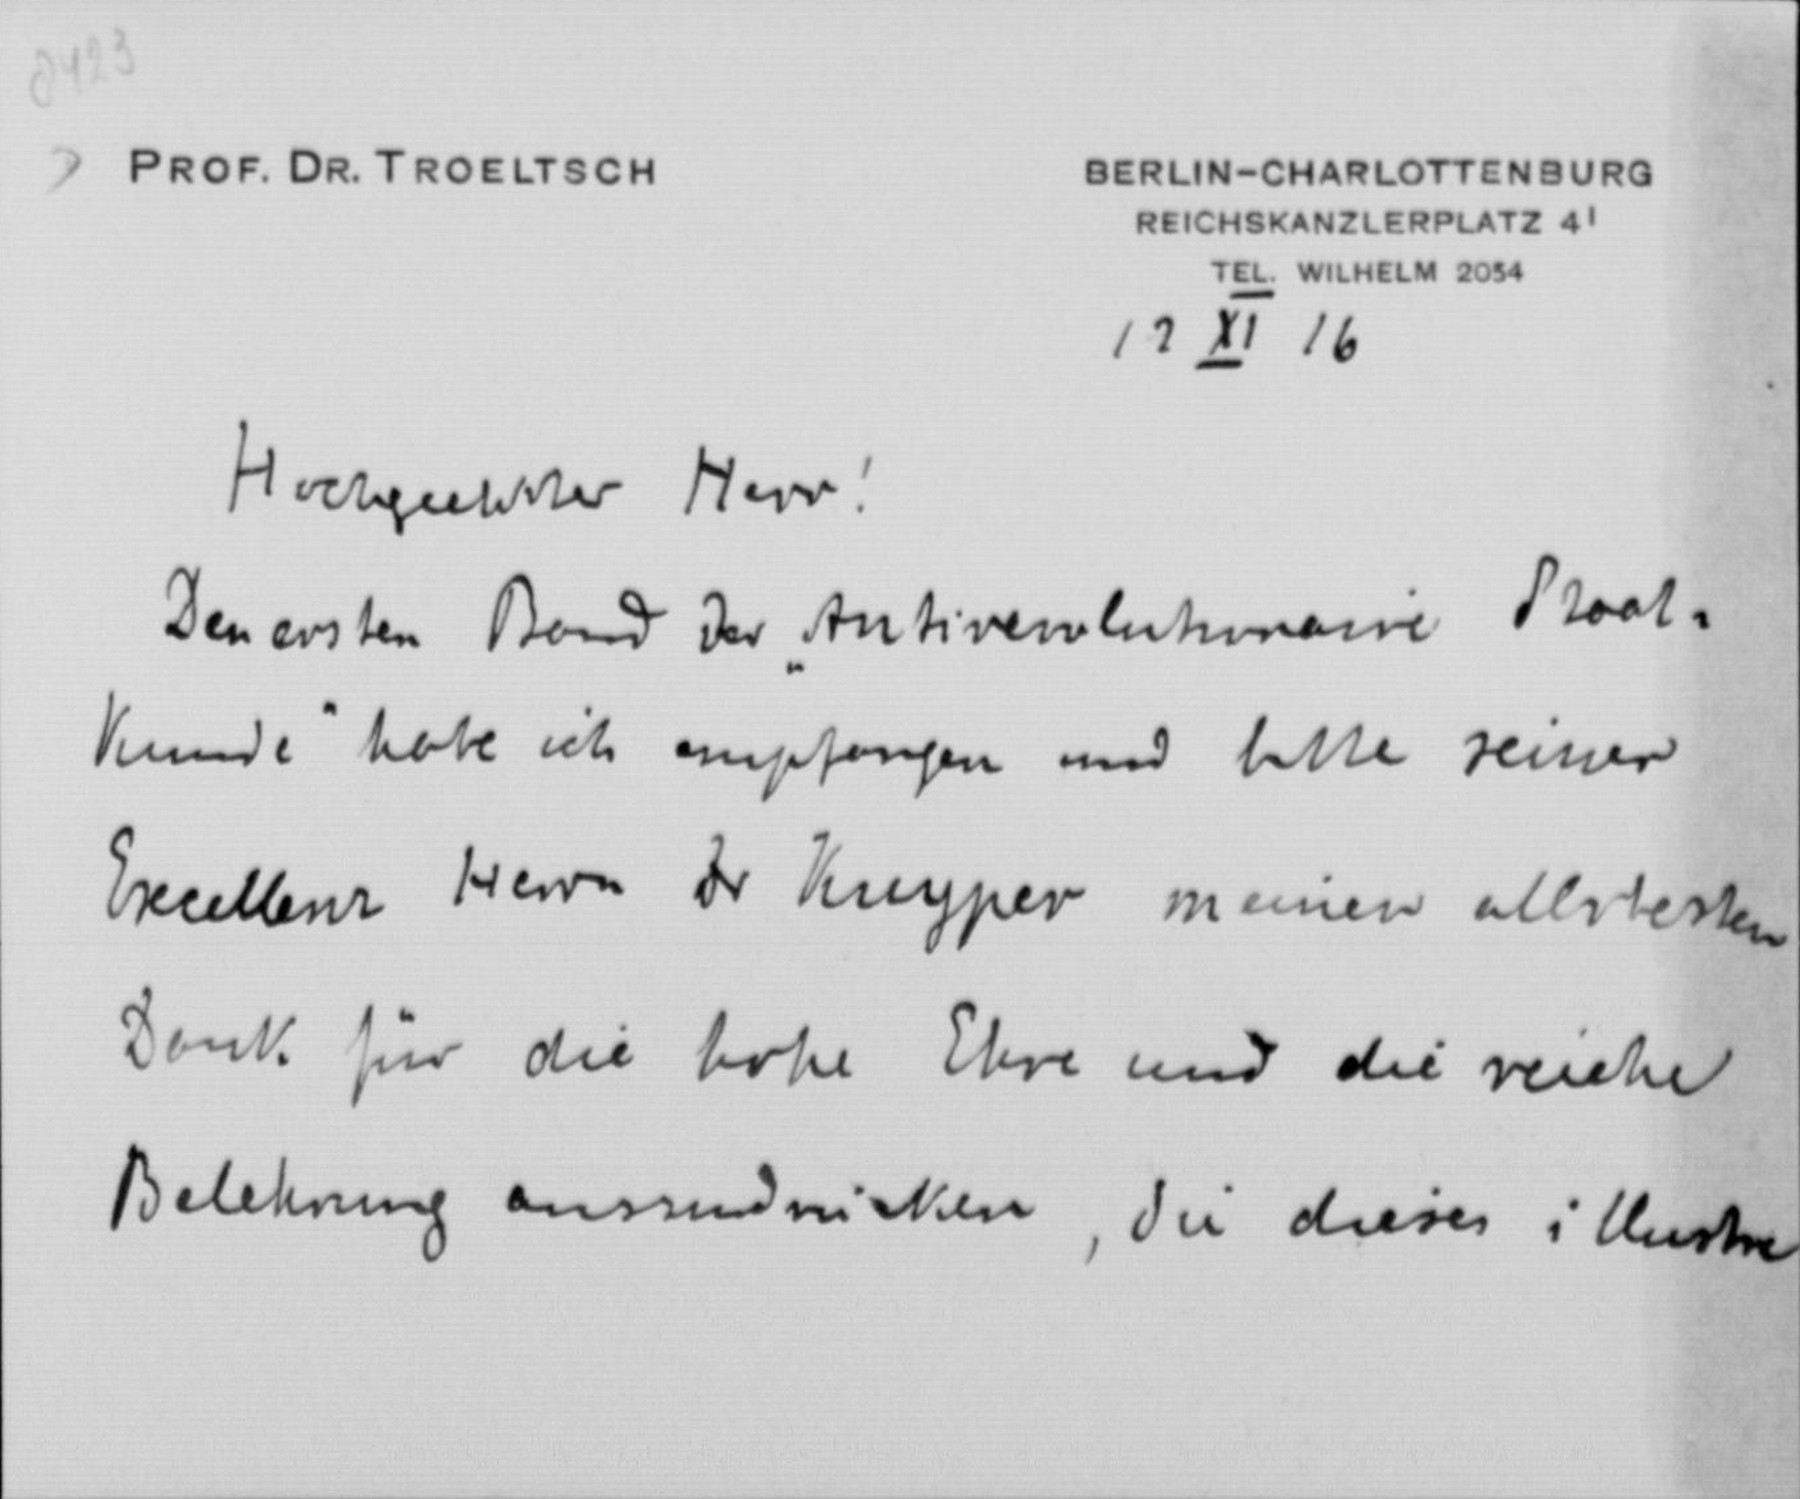 8423
PROF. DR. TROELTSCH
BERLIN-CHARLOTTENBURG
REICHSKANZLERPLATZ 4 I
TEL. WILHELM 2054
12 XI 16
Hochgeehrter Herr!
Den ersten Band der „Antirevolutionaire Staat-
kunde" habe ich empfangen und bitte seiner
Excellenz Herrn Dr Kuyper meinen
Dank für die hohe Ehre und die reiche
Belehrung auszudrücken, die dieses illustre